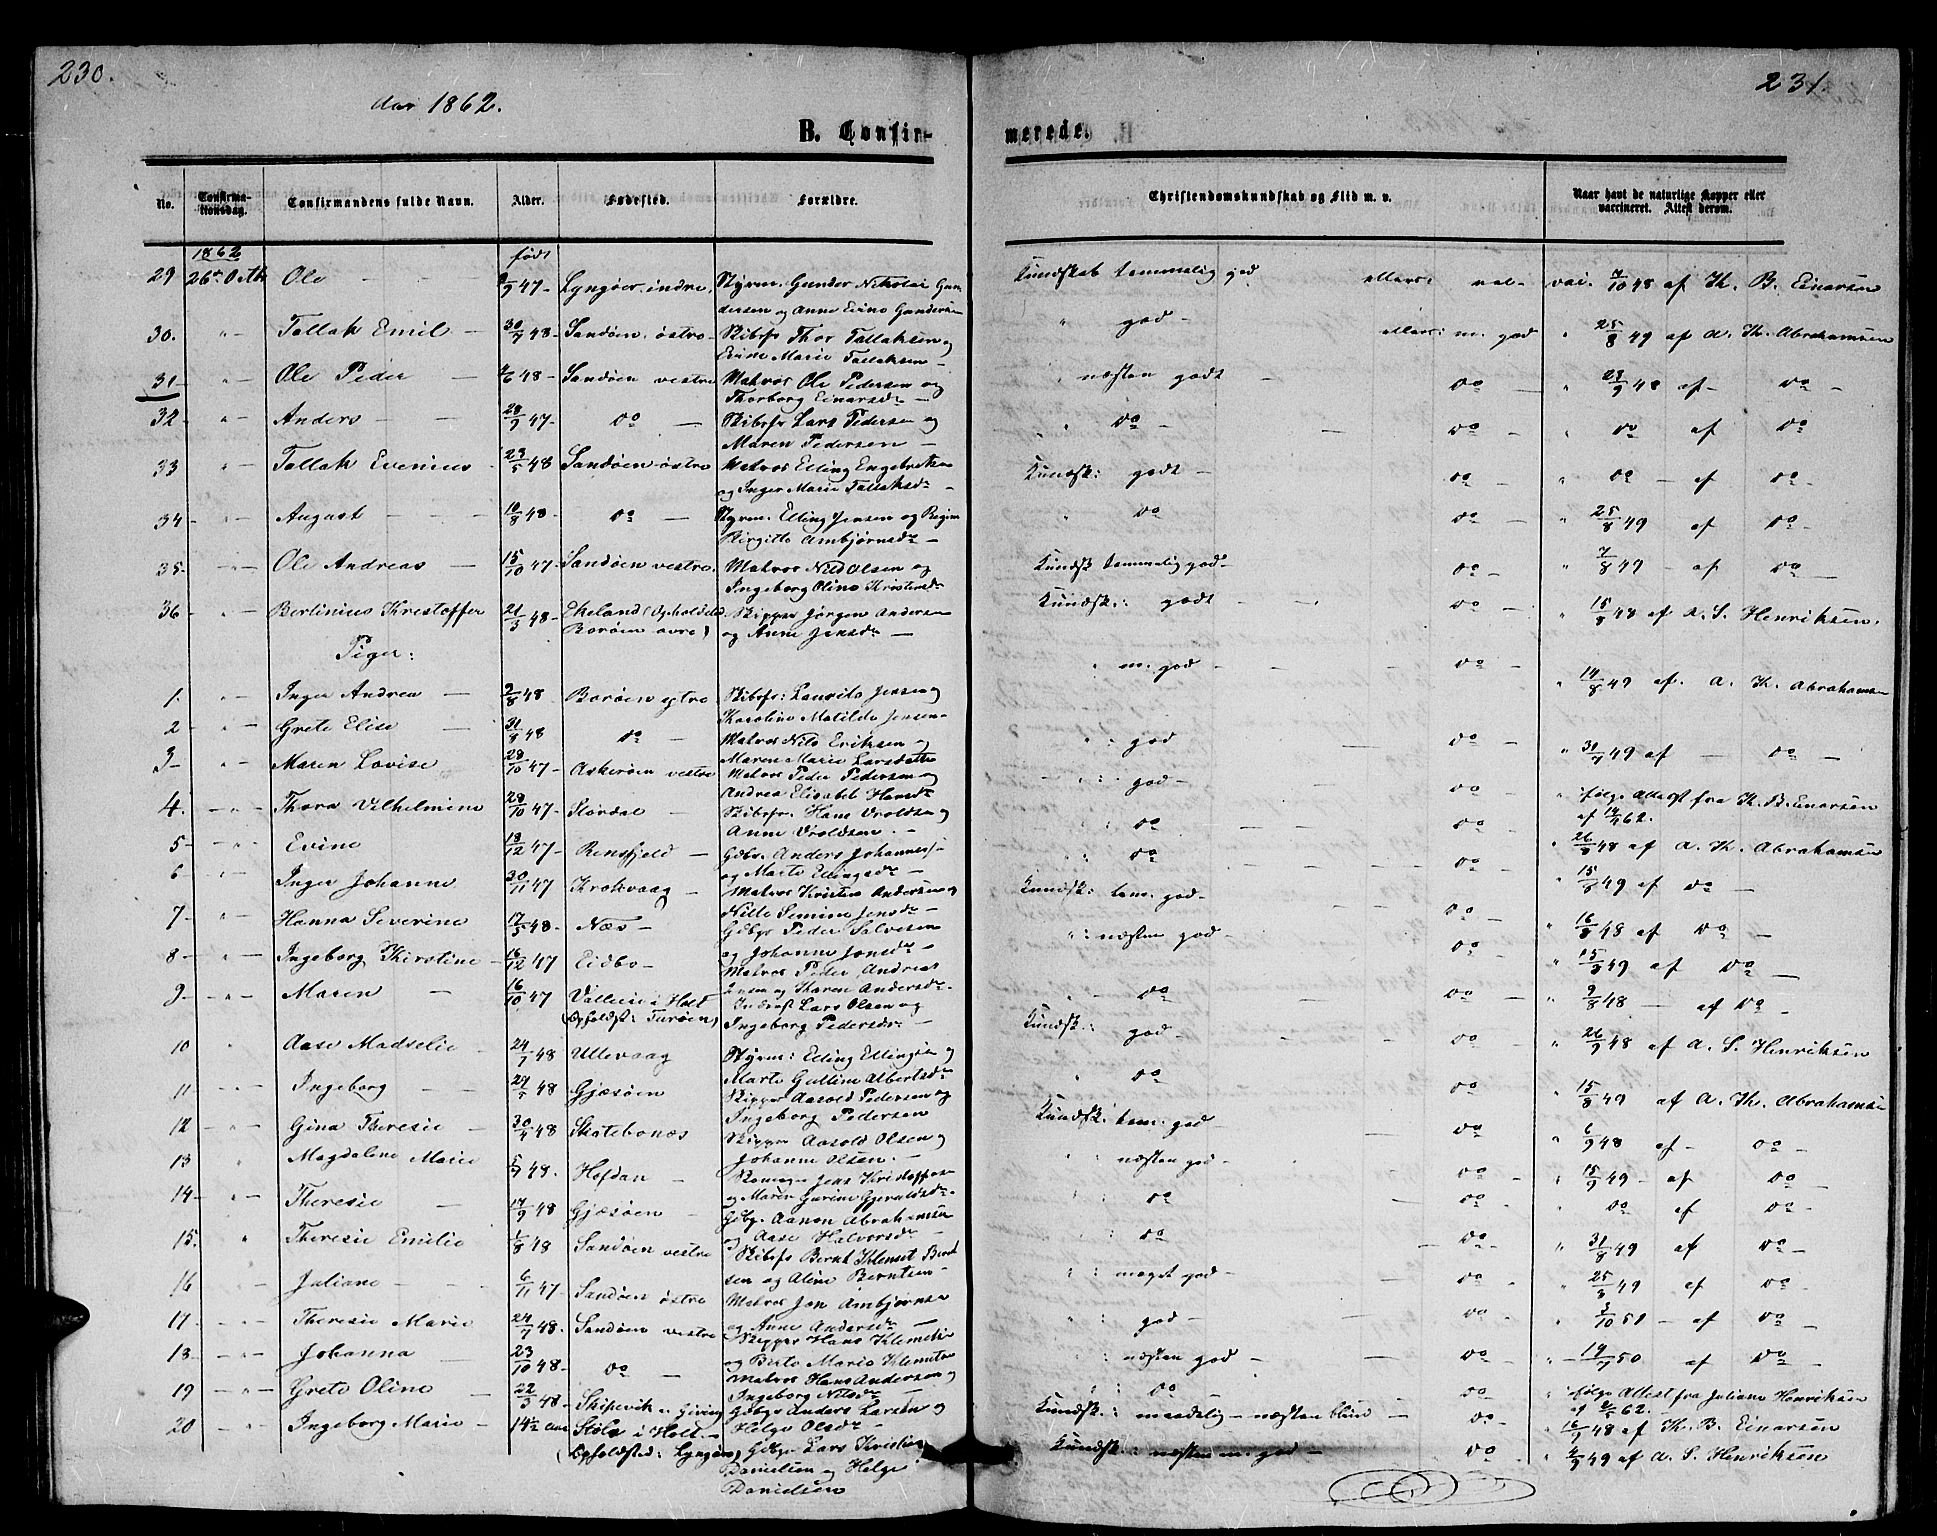 230.
Aar 1862.
B. Confir-
No. Confirma-tionsdag. Confirmandens fulde Navn. Alder. Fødested. Forældre.
1862 født
29 26de Octb Ole - 47- Lyngøer indre. Styrm. Gunder Nikolai Gun
dersen og Anne Evine Gundersen
30. " Tallak Emil - 30/7 48- Sandøen østre- Skibsfr Thor Tallaksen og
Evine Marie Tallaksen -
31- " Ole Peder - 4/6 48- Sandøen vestre Matros Ole Pedersen og
Thorborg Einarsdr -
32- " Anders - - 28/9 47- do - Skibsfr Lars Pedersen og
Maren Pedersen -
33 " Tallak Evenius - 23/5 48 Sandøen østre Matros Elling Engebretsen
og Inger Marie Tallaksdr -
34- " August - - - 10/8 48 do - Styrm. Elling Jensen og
Birgitte Ambjørnsdr -
35- " Ole Andreas - 15/10 47- Sandøen vestre. Matros Nils Olsen og
Ingeborg Oline Kristensdr
36 " Berlinius Kristoffer 21/5 48- Ekeland (Opholdsted Skipper Jørgen Andersen
Borøen øvre) og Anne Jensdr -
Piger:
1. " Inger Andrea - 9/8 48 Borøen ytre Skibsfr: Laurits Jensen og
Karoline Matilde Jensen-
2 - " Grete Elise - 31/8 48 do - Matros Nils Eriksen og
Maren Marie Larsdatter
3- " Maren Lovise 28/10 47- Askerøen vestre Matros Peder Pedersen og
Andrea Elisabet Hansdr
4 - " - Thora Vilhelmine 28/10 47- Stordal - Skibsfr. Hans Vroldsen og
Anne Vroldsen. -
5 - " - Evine - 18/12 47- Rensfjeld - Gdbr. Anders Johannes
og Marte Ellingsdr -
6 - " - Inger Johanne 30/11 47 Krokvaag - Matros Kristen Andersen og
Nille Semine Jensdr -
7- " - Hanna Severine 17/5 48- Næs - Gdbgr Peder Salvesen
og Johanne Jonsdr -
8- - " - Ingeborg Kirstine - 16/12 47 Eidbo - Matros Peder Andreas
og Karen Andersdr -
9 - " - Maren - 16/10 47 Vallere i Holt Lars Olsen og
(Opholdst: Furøen) Ingeborg Pedersdr: -
10 " Aase Madselie - 24/7 48 Ullevaag Styrm: Elling Ellingsen og
Marte Guline Albertsdr
11- - " - Ingeborg - - 29/5 48 Gjæsøen Skipper Aasold Pedersen og
Ingeborg Pedersen
12 - " - Gina Theresie - 30/4 48 Skatebonæs Skipper Aasold Olsen og
Johanne Olsen. -
13 " Magdalene Marie 5/7 48. Hofdan - Jens Kristoffers
og Maren Gurine Gjeruldsdr.
14- - " Theresie - 17/9 48 Gjæsøen - Gdbgr. Aanon Abrahamsen
og Aase Halvorsdr -
15. " Theresie Emilie 1/8 48 Sandøen vestre Skibsfr Bernt Klemet Bernt
sen og Aline Berntsen -
16 - " - Juliane - - 6/11 47 Sandøen østre Matros Jon Ambjørnsen
og Anne Andersdr -
17. - " - Theresie Marie 24/7 48. Sandøen vestre Skipper Hans Klemetsen
og Berte Marie Klemetsen
18- - " - Johanna - 23/10 48- do - Matros Hans Andersen og
Ingeborg Nilsdr -
19 - " - Grete Oline - 22/3 48- Skipevik i Giving Gdbgr Anders Larsen og
Helge Olsdr -
20 - " - Ingeborg Marie - 14½ aar Støle i Holt - Gdbgr Lars Kristian
(Opholdsted: Lyngøer) Danielsen og Helge
Danielsen
231.
merede.
Christendomskundskab og Flid m. v. Naar havt de naturlige Kopper eller vaccineret. Attest derom.
Kundskab temmelig god ellers: vel- vac. 9/10 48 af Th. B. Einarsen
" god - ellers: m. god " 25/8 49 af A. Th. Abrahamsen
" næsten godt - do - " 28/9 48 af - do -
" do - - do - " do af do
Kundsk: godt - do - " do - af do -
" do do - " 25/8 49 af do -
Kundsk temmelig god - do - " 7/8 49 - af do -
Kundsk.: godt - do - " 15/8 48 af A. S. Henriksen.
" m. god - - do - " 14/8 49 af. A. Th. Abrahamsen
" : god - do - " 31/7 49 af - do -
" : god - do - " ifølge Attest fra Th. B. Einarsen
af 14/4 62.
" : do - - do - " 26/8 48 af A. Th. Abrahamsen
" : do - - do - " 15/8 49 af do -
Kundsk: tem. god - do - " 16/8 48 af do -
" : næsten god - do - " 15/8 49 af do -
" - do - do - " 9/8 48 - af do -
Kundsk: god - - do - " 26/9 48 af A. S. Henriksen
" do - do - " 15/8 49 af A. Th. Abrahamsen
Kundsk: tem. god do - " 6/9 48 af - do -
" : næsten god - do - " 15/9 49 - af do -
" : do - - do - " do af do
" : do do - " 31/8 49 af do -
" : meget god - - do - " 25/3 49 af do -
" : god - - do - " 3/10 51 - af do -
" : næsten god - - do - " 19/7 50 af do -
" : do - do - " ifølge Attest fra Juliane Henriksen
af 62.
Kundsk.: maadelig - næsten - do - " 16/7 48 af Th. B. Einarsen
Kundsk.: næsten m. god - do - " 4/9 49 af A. S. Henriksen